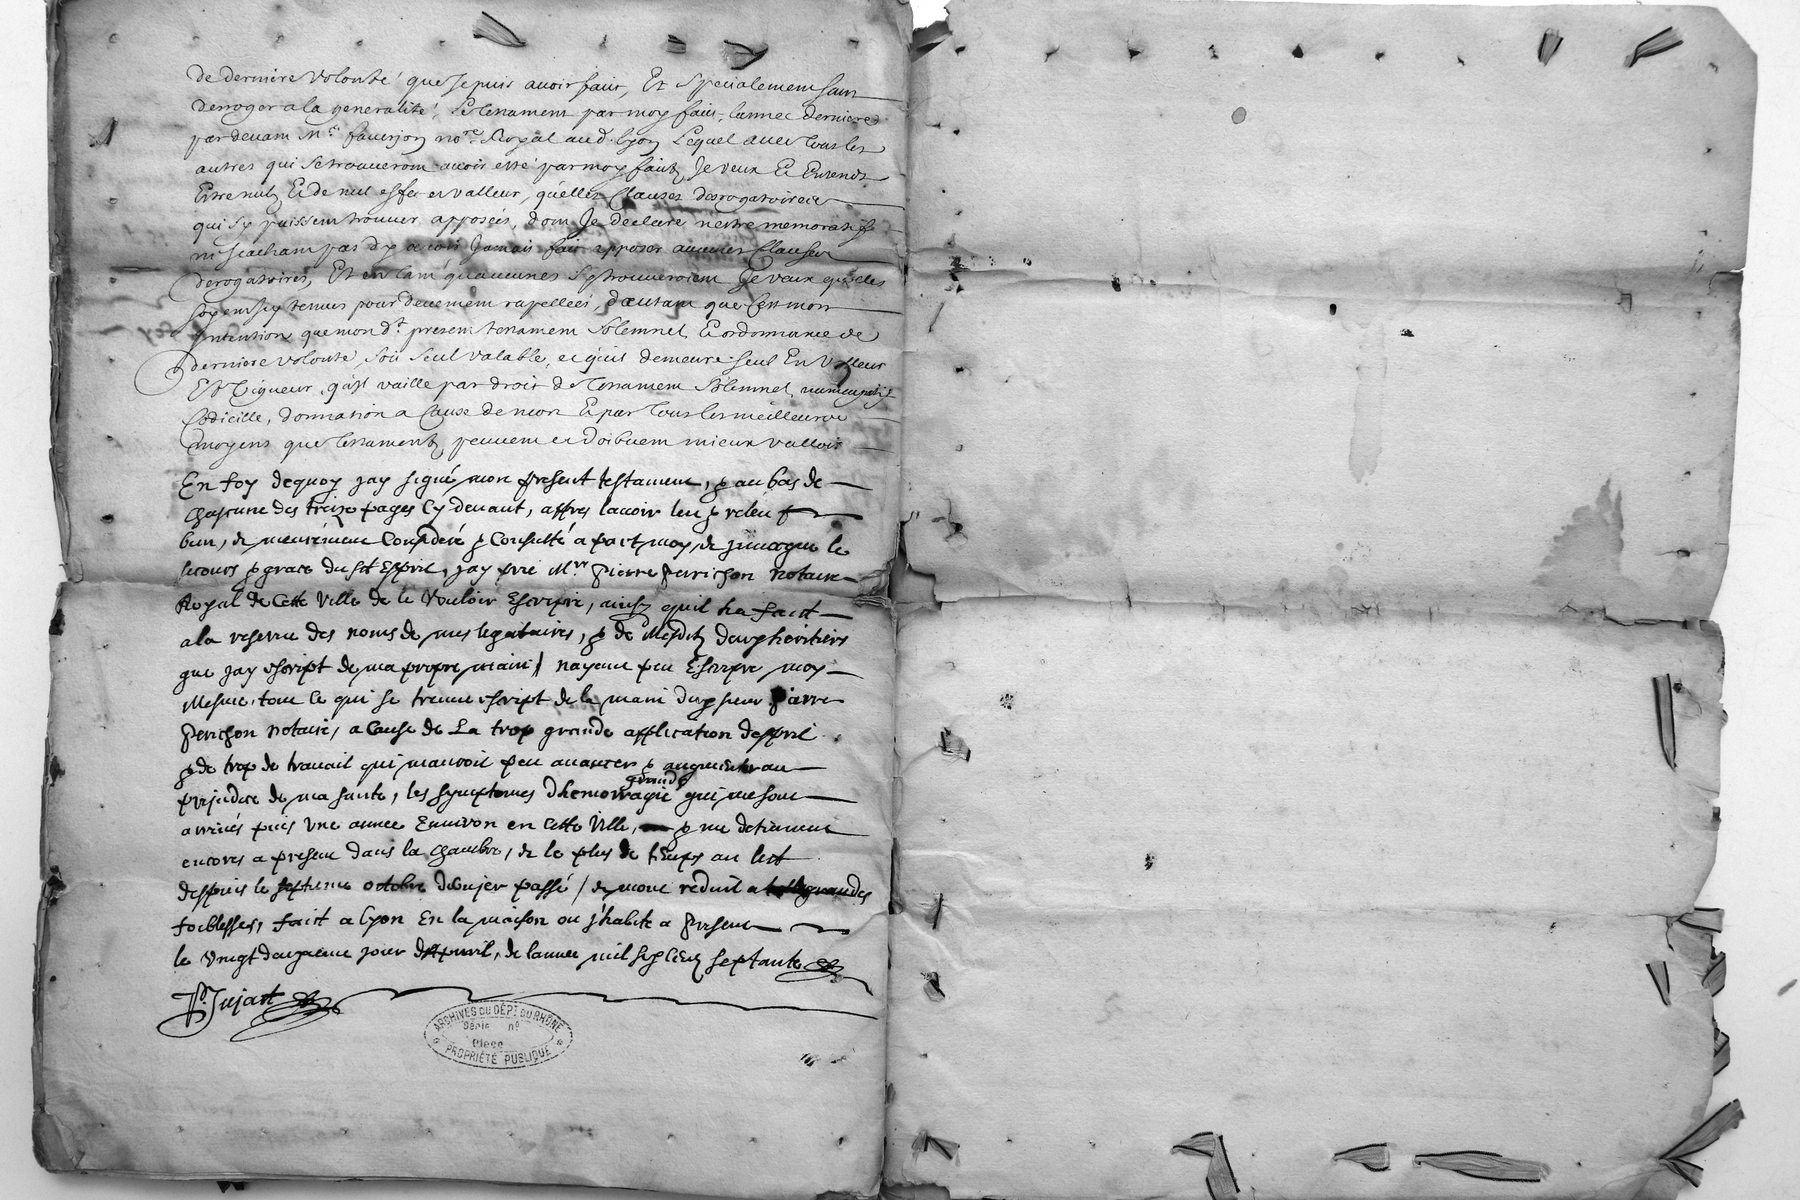 de derniere volonté que je puis avoir fait, Et specialement sans
derroger a la generalité, le testament par moy fait, lannee derniere
par devant Me faverjon nore Royal aud. Lyon Lequel avec tous les
autres qui se trouveront avoir esté par moy faits, Je veux Et Entends
Estre nuls Et de nul effet et valleur, quelles Clauses derogatoires
qui sy puissent trouver apposées, dont Je declare n'estre memoratif
ne scachant pas dy avoir Jamais fait apposer aucunes Clauses
derogatoires, Et en tant qu'aucunes sy trouveroient Je veux qu'elles
soyent icy tenues pour deuement rapellées, d'autant que c'est mon
intention que mon dt. present testament solemnel, Et ordonnance de
derniere volonté, soit seul valable, et qu'il demeure seul En Valleur
Et Vigueur, qu'il vaille par droit de Testament solemnel, nuncupatif
Codicille, donnation a Cause de mort Et par tous les meilleurs
moyens que testaments peuvent et doibvent mieux valloir
En foy dequoy jay signé mon present testament, & au bas de
chascune des treize pages cy devant, appres lavoir leu & releu
bien, & meurement Considéré & Consulté a part moy, & jnvoqué le
secours & grace du St Esprit, jay prié Mr. Pierre Perichon notaire
Royal de Cette Ville de le Vouloir Escripre, ainsy quil ha faict
a la reserve des noms de mes legataires, & de Mesdits deux héritiers
que jay escript de ma propre main / nayant peu Escripre moy
Mesme, tout ce qui se treuve escript de la main dudit sieur Pierre
Perichon notaire, a Cause de La trop grande application desprit
& de trop de travail qui mauroit peu avancer & augmenter au
prejudice de ma santé, les symptomes dhemorragie grande qui me sont
arrivés puis Une année Environ en Cette Ville, & me detiennent
encores a present dans la chambre, & le plus de temps au lict
despuis le septieme octobre dernier passé / & mont reduit a grandes
foiblesses, faict a Lyon En la maison ou j'habite a present
le Vingt deuxieme jour d'Apvril, de lannée mil sept cents septante
P. Jujast
ARCHIVES DU DÉPT DU RHÔNE
Série nº
Pièce
PROPRIÉTÉ PUBLIQUE